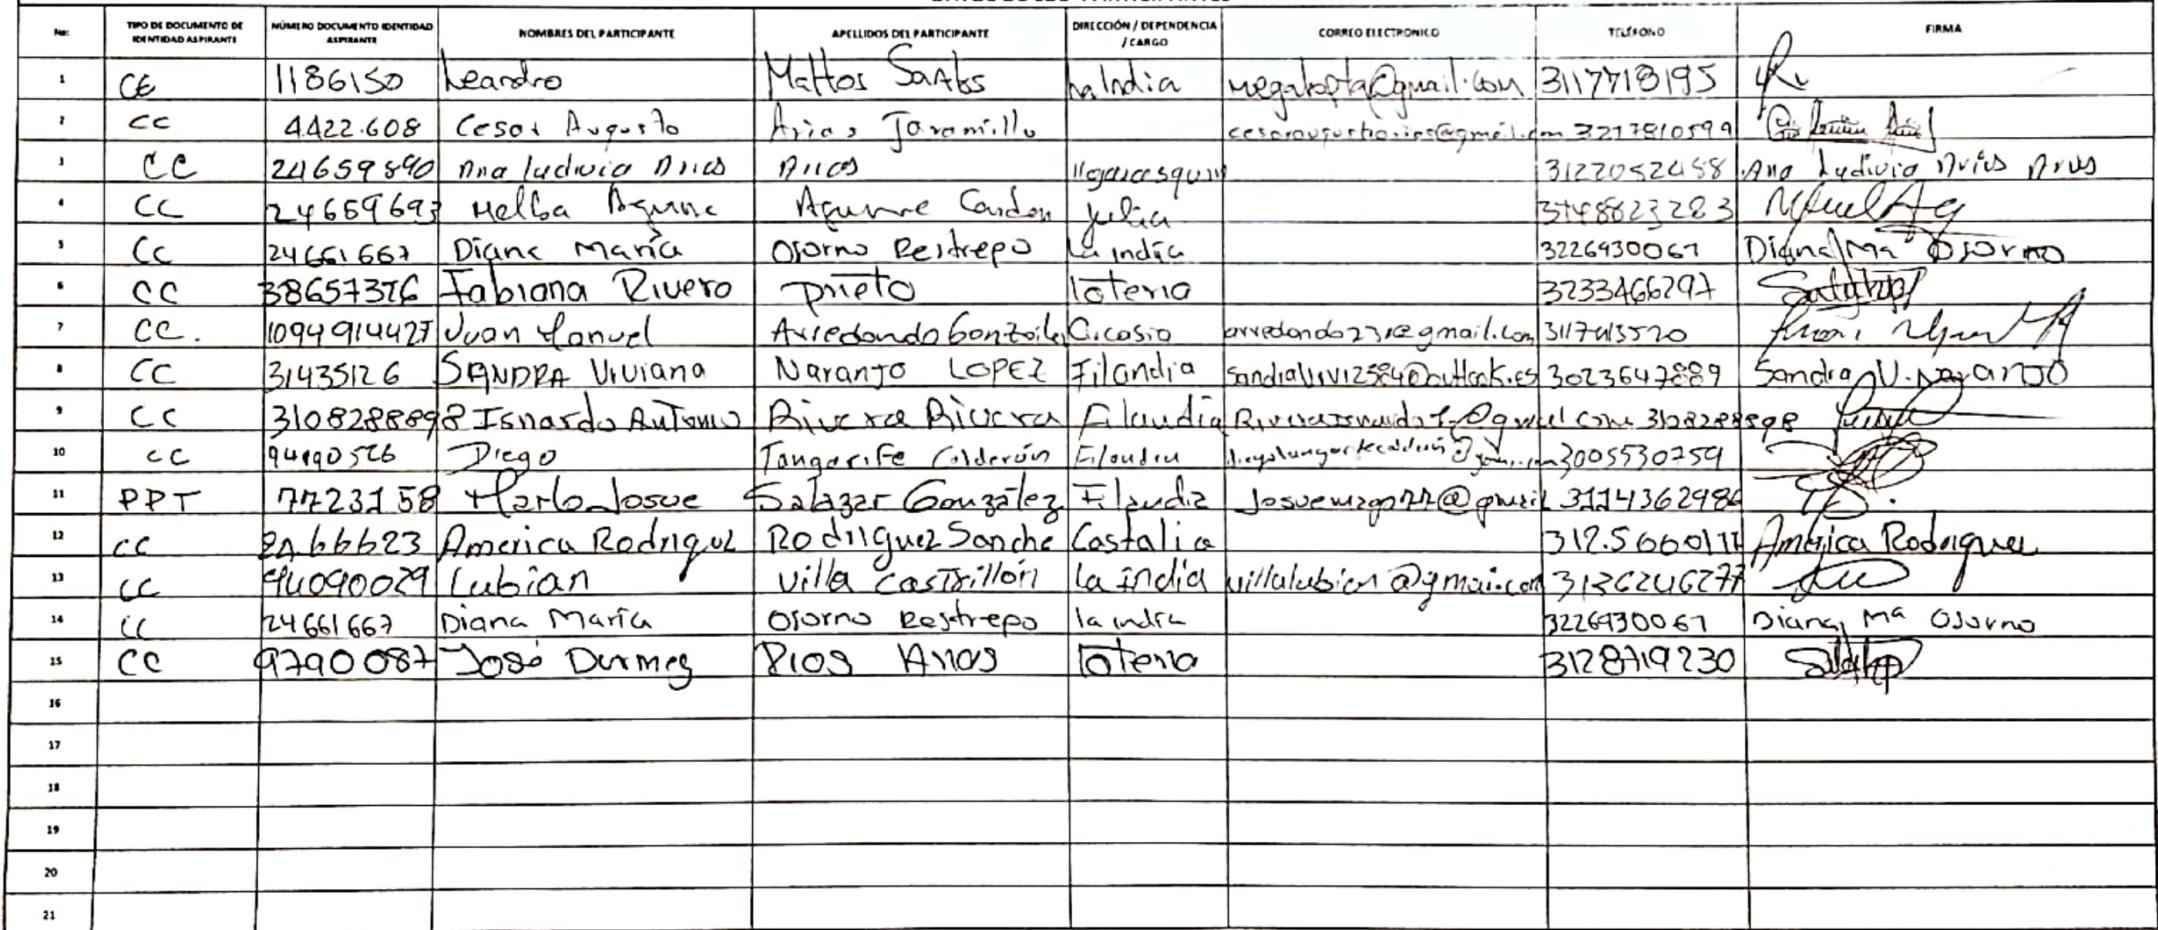 No: TIPO DE DOCUMENTO DE IDENTIDAD ASPIRANTE NÚMERO DOCUMENTO IDENTIDAD ASPIRANTE NOMBRES DEL PARTICIPANTE APELLIDOS DEL PARTICIPANTE DIRECCIÓN / DEPENDENCIA / CARGO CORREO ELECTRONICO TELÉFONO FIRMA
1 CE 1186150 Leandro Mattos Santos La India 3117718195
2 CC 4.422.608 Cesar Augusto Arias Jaramillo 3217810599
3 CC 24659890 Ana ludivia Arias Arias 3122052458 Ana Ludivia Arias Arias
4 CC 24659693 Melba Aguirre Aguirre Cardon Julia 3148623283
5 CC 24661667 Diana María Osorno Restrepo La india 3226930067 Diana Ma Osorno
6 CC Fabiana Rivero prieto loteria 3233466297
7 CC. 1094914427 Juan Manuel Arredondo Circasia arredondo231@gmail.com
8 CC 31435126 SANDRA Viviana Naranjo LOPEZ Filandia 3023647889 Sandra V. Naranjo
9 CC 3108288898 Isnardo Antonio Rivera Rivera Filandia 3108288898
10 CC Diego Tangarife Calderón Filandia 3005530759
11 PPT 7723158 Josue Salazar González Filandia 3114362986
12 CC America Rodriguez Rodriguez Sanche Castalia America Rodriguez
13 CC 94090029 Lubian Villa Castrillón la india 3136246277
14 CC 24661667 Diana María Osorno Restrepo la india 3226930067 Diana Ma Osorno
15 CC 9790087 José Durmey Rios Arias loteria 3128719230
16
17
18
19
20
21